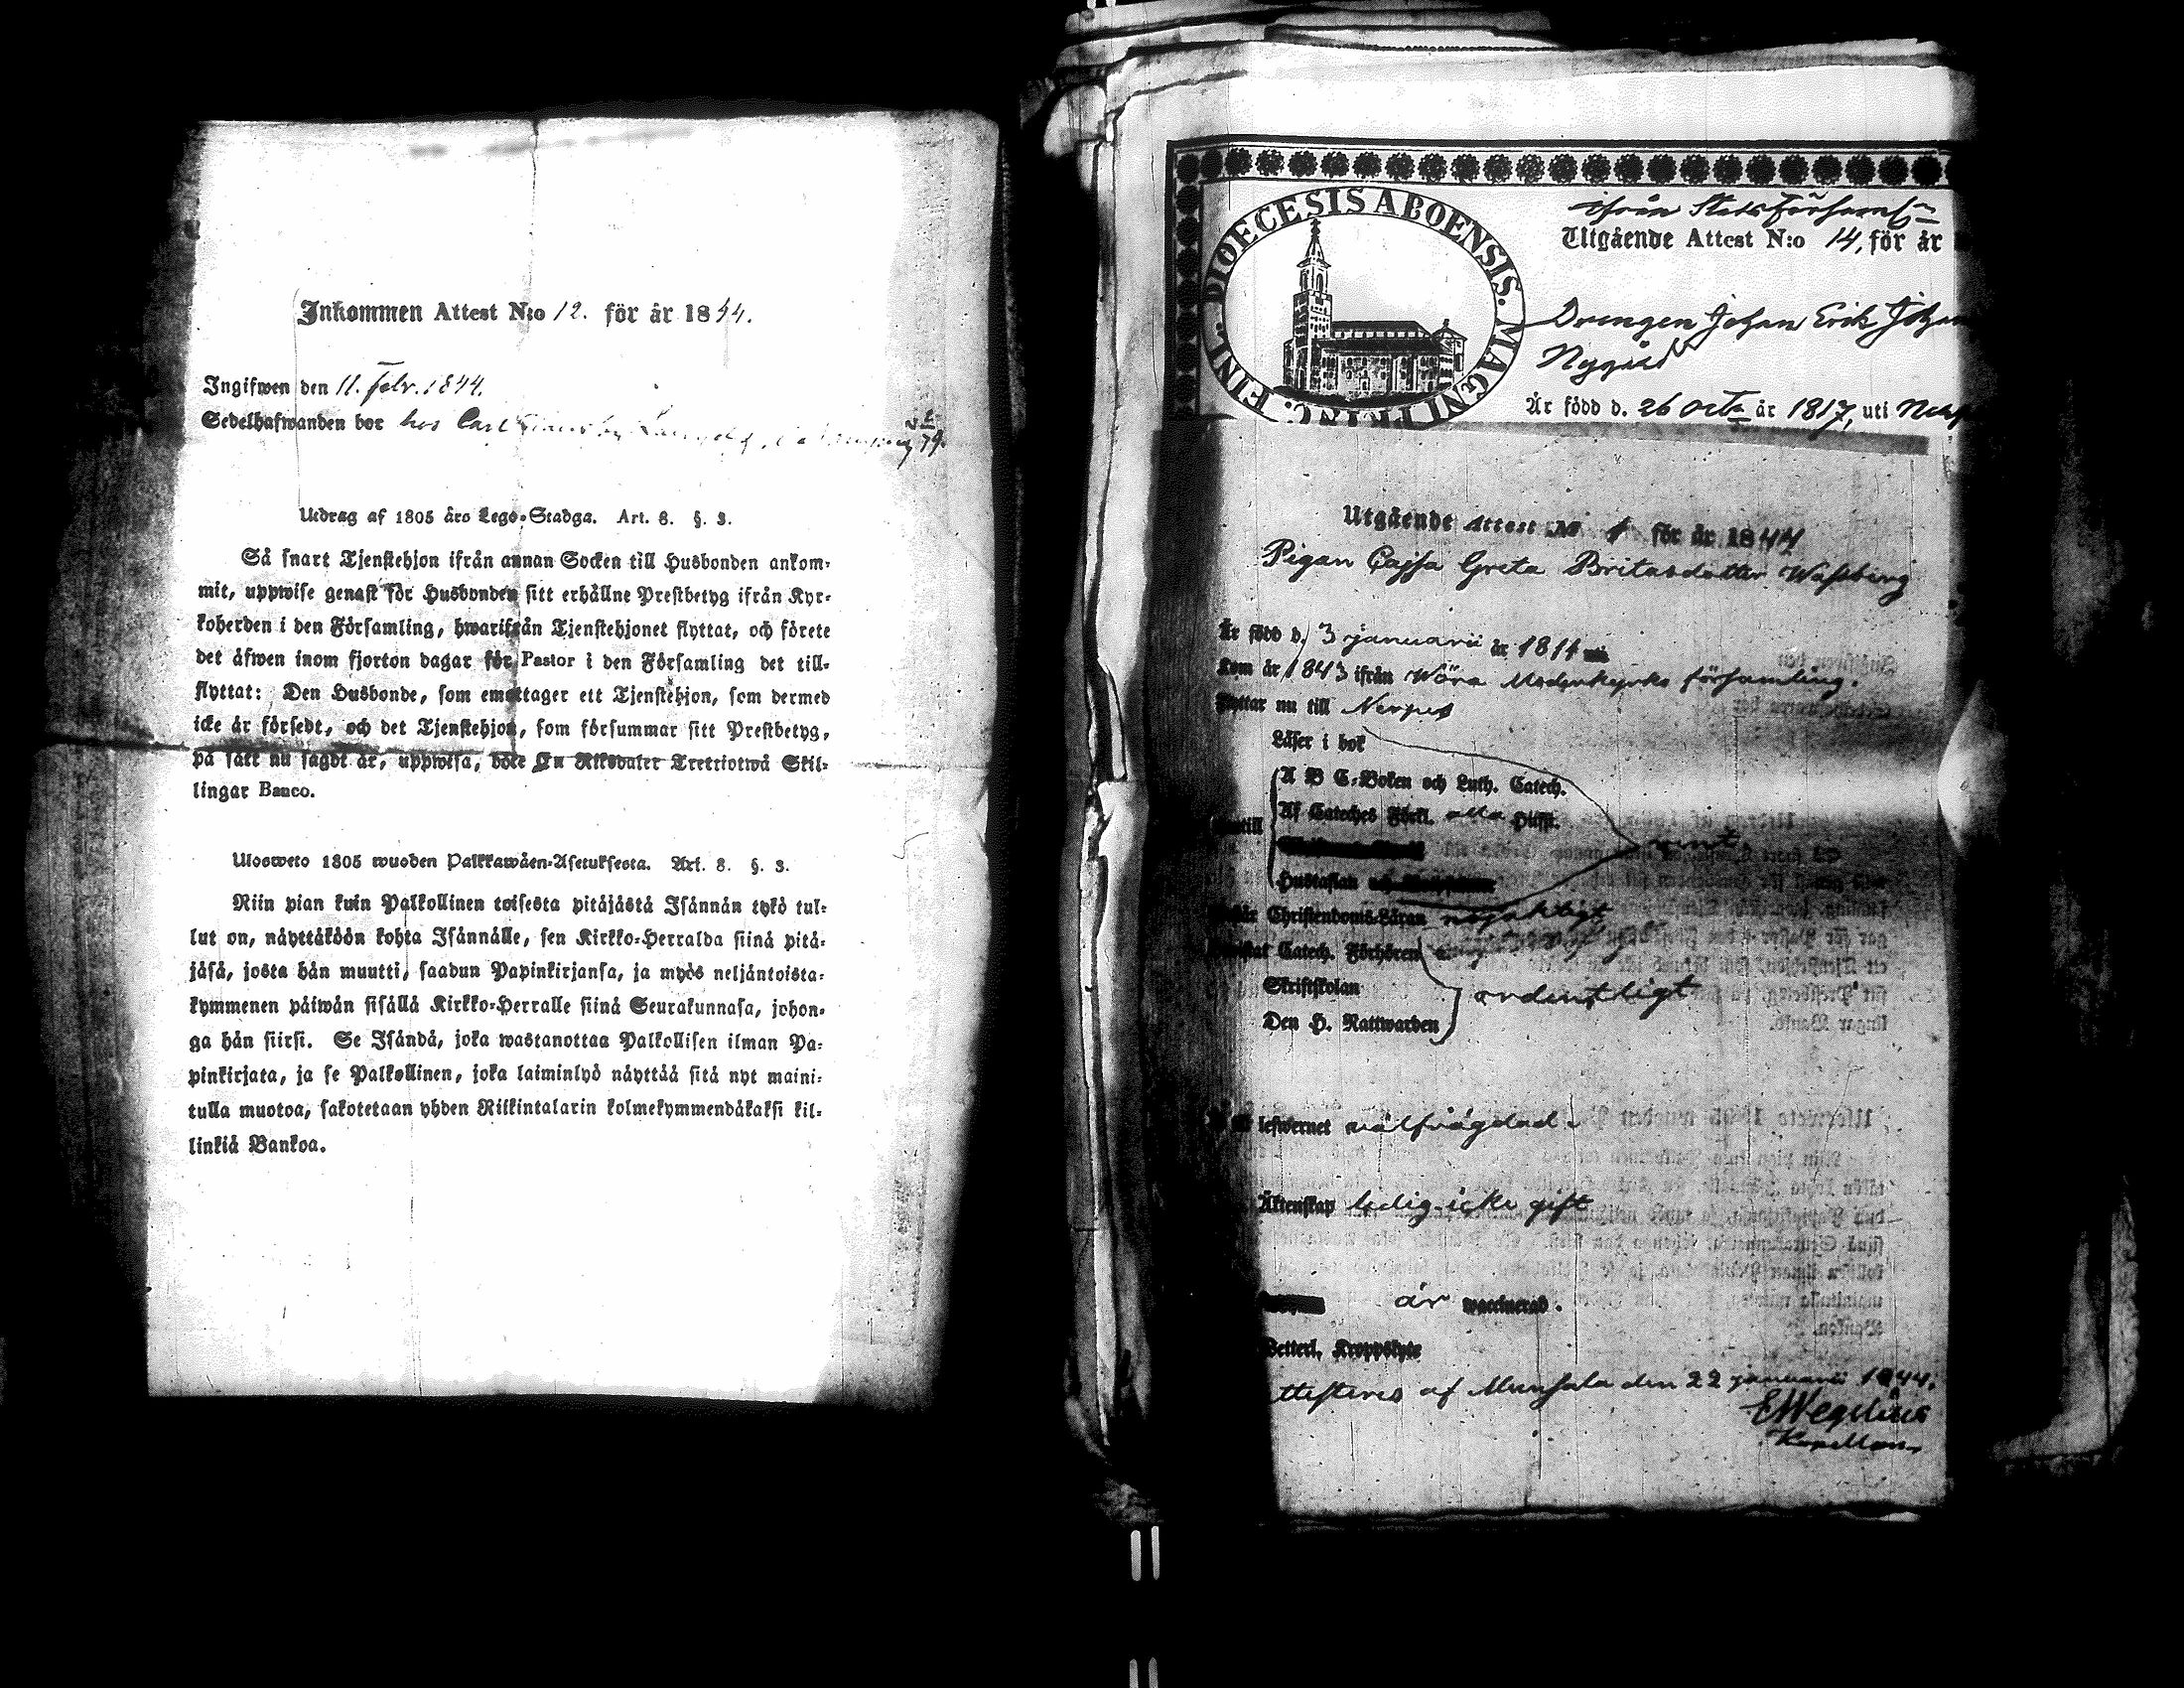 Inkommen Attest N:o 12. för år 1844.
Ingifwen den 11. Febr. 1844.
Sedelhafwanden bor hos Carl
Utdrag af 1805 års Lego-Stadga. Art. 8. §. 3.
Så snart Tjenstehjon ifrån annan Socken till Husbonden ankom-
mit, uppwise genast för Husbonden sitt erhållne Prestbetyg ifrån Kyr-
koherden i den Församling, hwarifrån Tjenstehjonet flyttat, och förete
det äfwen inom fjorton dagar för Pastor i den Församling det till-
flyttat: Den Husbonde, som emottager ett Tjenstehjon, som dermed
icke är försedt, och det Tjenstehjon, som försummar sitt Prestbetyg,
på sätt nu sagdt är, uppwisa, böte En Riksdaler Tretriotwå Skil-
lingar Banco.
Ulosweto 1805 wuoden Palkkawäen-Asetuksesta. Art. 8. §. 3.
Niin pian kuin Palkollinen toisesta pitäjästä Isännän tykö tul-
lut on, näyttäköön kohta Isännälle, sen Kirkko-Herralda siinä pitä-
jäsä, josta hän muutti, saadun Papinkirjansa, ja myös neljäntoista-
kymmenen päiwän sisällä Kirkko-Herralle siinä Seurakunnasa, johon-
ga hän siirsi. Se Isändä, joka wastanottaa Palkollisen ilman Pa-
pinkirjata, ja se Palkollinen, joka laiminlyö näyttää sitä nyt maini-
tulla muotoa, sakotetaan yhden Riikintalarin kolmekymmendäkaksi kil-
linkiä Bankoa.
DIOECESIS ABOENSIS. MAGNI FINL.
ifrån Stads Församl
Utgående Attest N:o 14, för år
Drengen Johan Erik Johan
Nygård
Är född d. 26 Octb. år 1817, uti
Utgående Attest No 1 för år 1844
Pigan Cajsa Greta Britasdotter Wassberg
Är född d. 3 januarii år 1811
Kom år 1843 ifrån Wörå Moderkyrko församling.
Flyttar nu till Nerpes
Läser i bok
A B C-Boken och Luth. Catech.
Af Cateches Förkl. alla Hufst.
Hustaflan
nöjaktigt
Christendoms-Läran
Catech. Förhören
Skriftskolan
ordentligt
Den H. Nattwarden
lefwernet välfrägdad.
Äktenskap ledig icke gift
är waccinerad.
Wetterl. Kroppslyte
attesteras af Munsala den 22 januarii 1844.
E Wegelius
Kapellan.